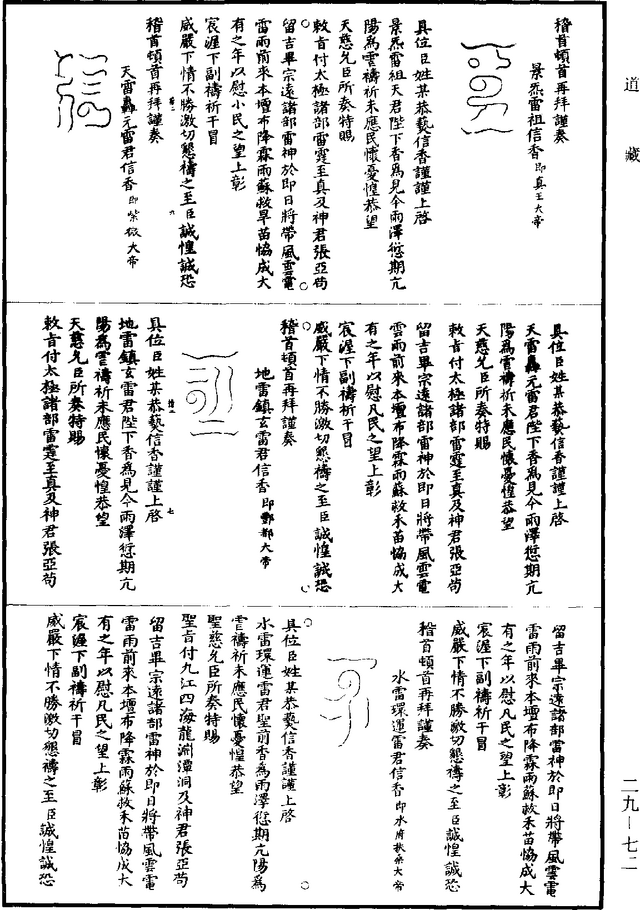 道藏
稽首頓首再拜謹奏
景炁雷祖信香即真王大帝
具位臣姓某恭爇信香謹謹上啓
景炁雷祖天君陛下香爲見今雨澤愆期亢
陽爲雩禱祈未應民懷憂惶恭望
天慈允臣所奏特賜
敕旨付太極諸部雷霆至真及神君張亞苟
留吉畢宗遠諸部雷神於即日將帶風雲電
雷雨前來本壇布降霖雨蘇救旱苗恊成大
有之年以慰小民之望上彰
宸渥下副禱祈干冒
威嚴下情不勝激切懇禱之至臣誠惶誠恐
稽首頓首再拜謹奏
天雷轟元雷君信香即紫微大帝
具位臣姓某恭爇信香謹謹上啓
天雷轟元雷君陛下香爲見今雨澤愆期亢
陽爲雩禱祈未應民懷憂惶恭望
天慈允臣所奏特賜
敕旨付太極諸部雷霆至真及神君張亞苟
留吉畢宗遠諸部雷神於即日將帶風雲電
雲雨前來本壇布降霖雨蘇救禾苗恊成大
有之年以慰凡民之望上彰
宸渥下副禱祈干冒
威嚴下情不勝激切懇禱之至臣誠惶誠恐
稽首頓首再拜謹奏
地雷鎮玄雷君信香即酆都大帝
具位臣姓某恭爇信香謹謹上啓
地雷鎮玄雷君陛下香爲見今雨澤愆期亢
陽爲雩禱祈未應民懷憂惶恭望
天慈允臣所奏特賜
敕旨付太極諸部雷霆至真及神君張亞苟
留吉畢宗遠諸部雷神於即日將帶風雲電
雷雨前來本壇布降霖雨蘇救禾苗恊成大
有之年以慰凡民之望上彰
宸渥下副禱祈干冒
威嚴下情不勝激切懇禱之至臣誠惶誠恐
稽首頓首再拜謹奏
水雷環運雷君信香即水府扶桑大帝
具位臣姓某恭爇信香謹謹上啓
水雷環運雷君聖前香爲雨澤愆期亢陽爲
雩禱祈未應民懷憂惶恭望
聖慈允臣所奏特賜
聖旨付九江四海龍淵潭洞及神君張亞苟
留吉畢宗遠諸部雷神於即日將帶風雲電
雷雨前來本壇布降霖雨蘇救禾苗恊成大
有之年以慰凡民之望上彰
宸渥下副禱祈干冒
威嚴下情不勝激切懇禱之至臣誠惶誠恐
二九—七二